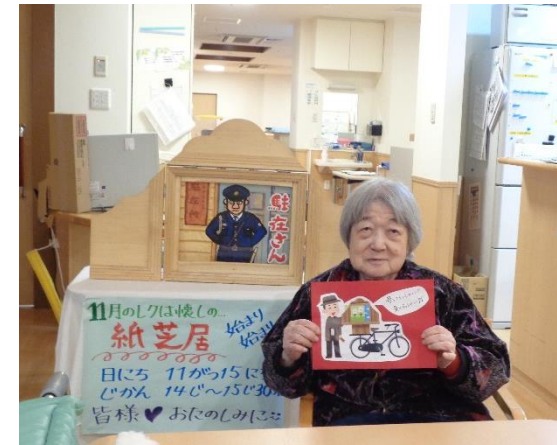 駐在所
駐在さん
11月のレクは懐しの…
紙芝居
始まり
始まり
日にち 11がつ15に
じかん 14じ〜15じ30
皆様♥おたのしみに